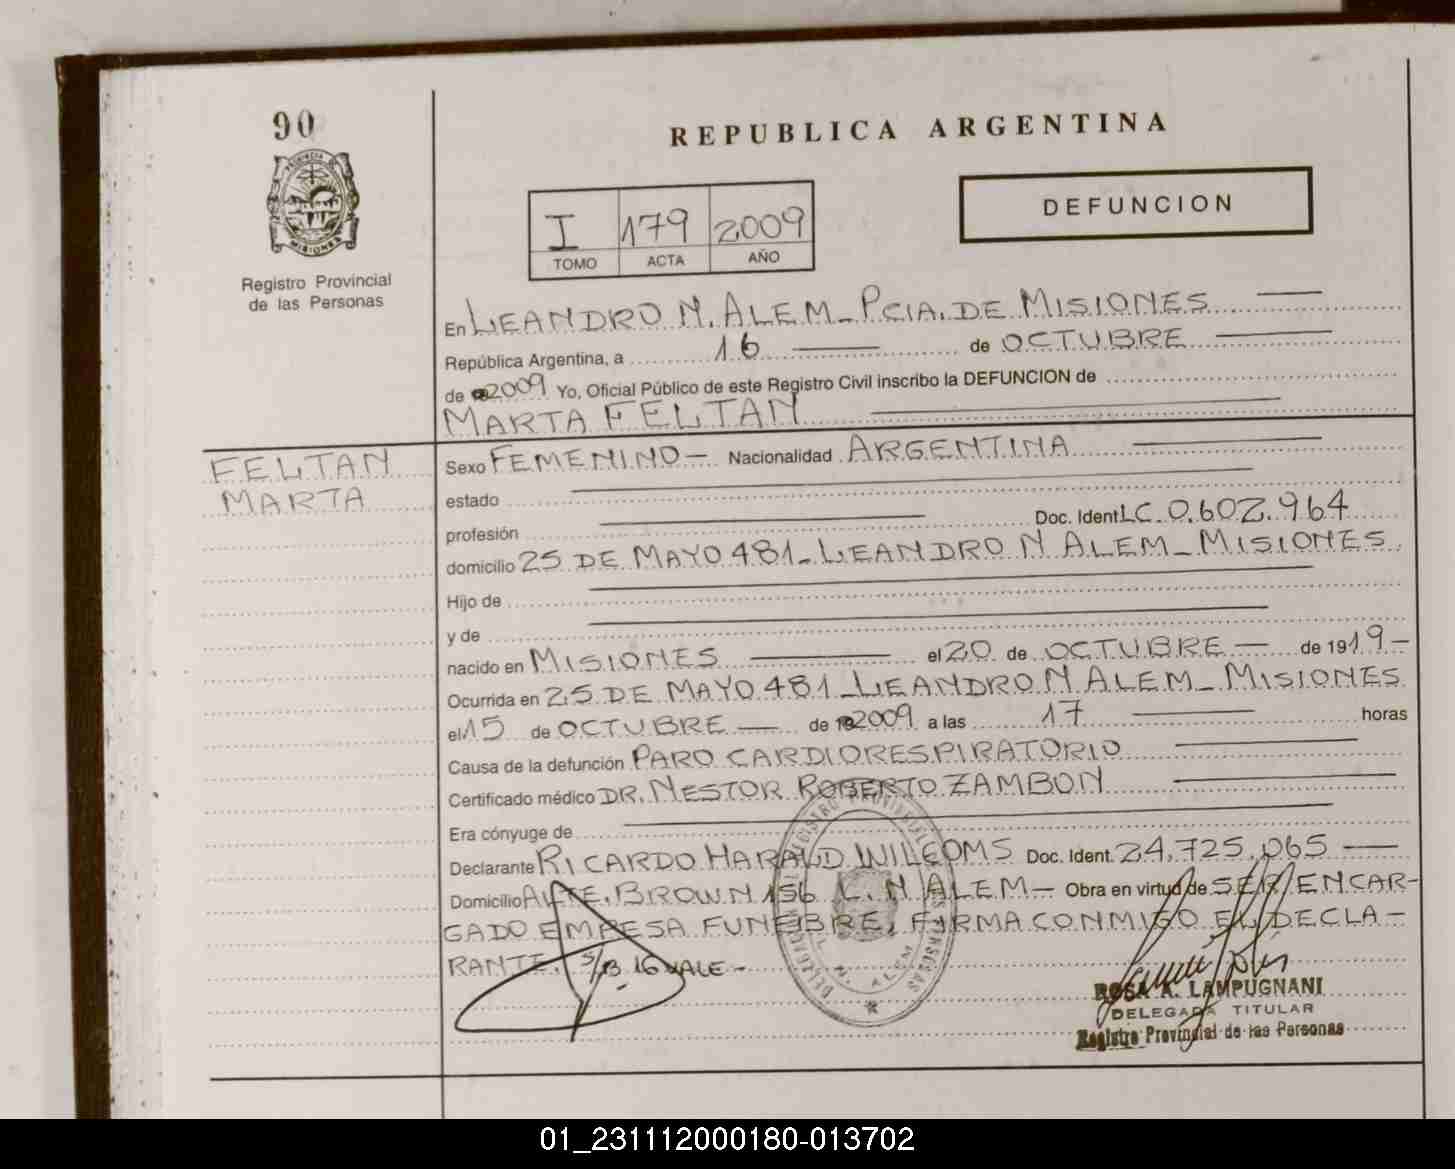 90
REPUBLICA ARGENTINA
PROVINCIA DE
MISIONES
Registro Provincial
de las Personas
I 179 2009
TOMO ACTA AÑO
DEFUNCION
En LEANDRO N. ALEM - PCIA. DE MISIONES
República Argentina, a 16 de OCTUBRE
de 2009 Yo, Oficial Público de este Registro Civil inscribo la DEFUNCION de
MARTA FELTAN
FELTAN
MARTA
Sexo FEMENINO - Nacionalidad ARGENTINA
estado
profesión Doc. Ident LC. 0.602.964
domicilio 25 DE MAYO 481 - LEANDRO N ALEM - MISIONES
Hijo de
y de
nacido en MISIONES el 20 de OCTUBRE - de 1919 -
Ocurrida en 25 DE MAYO 481 - LEANDRO N ALEM - MISIONES
el 15 de OCTUBRE - de 2009 a las 17 horas
Causa de la defunción PARO CARDIORESPIRATORIO
Certificado médico DR. NESTOR ROBERTO ZAMBON
Era cónyuge de
Declarante RICARDO HARALD Doc. Ident. 24.725.065
Domicilio ALTE. BROWN 156 L. N. ALEM - Obra en virtud de SER ENCAR-
GADO EMPRESA FUNEBRE, FIRMA CONMIGO EL DECLA-
RANTE. S/B. 16 VALE -
L. N. ALEM
ROSA A. LAMPUGNANI
DELEGADA TITULAR
Registro Provincial de las Personas
01_231112000180-013702